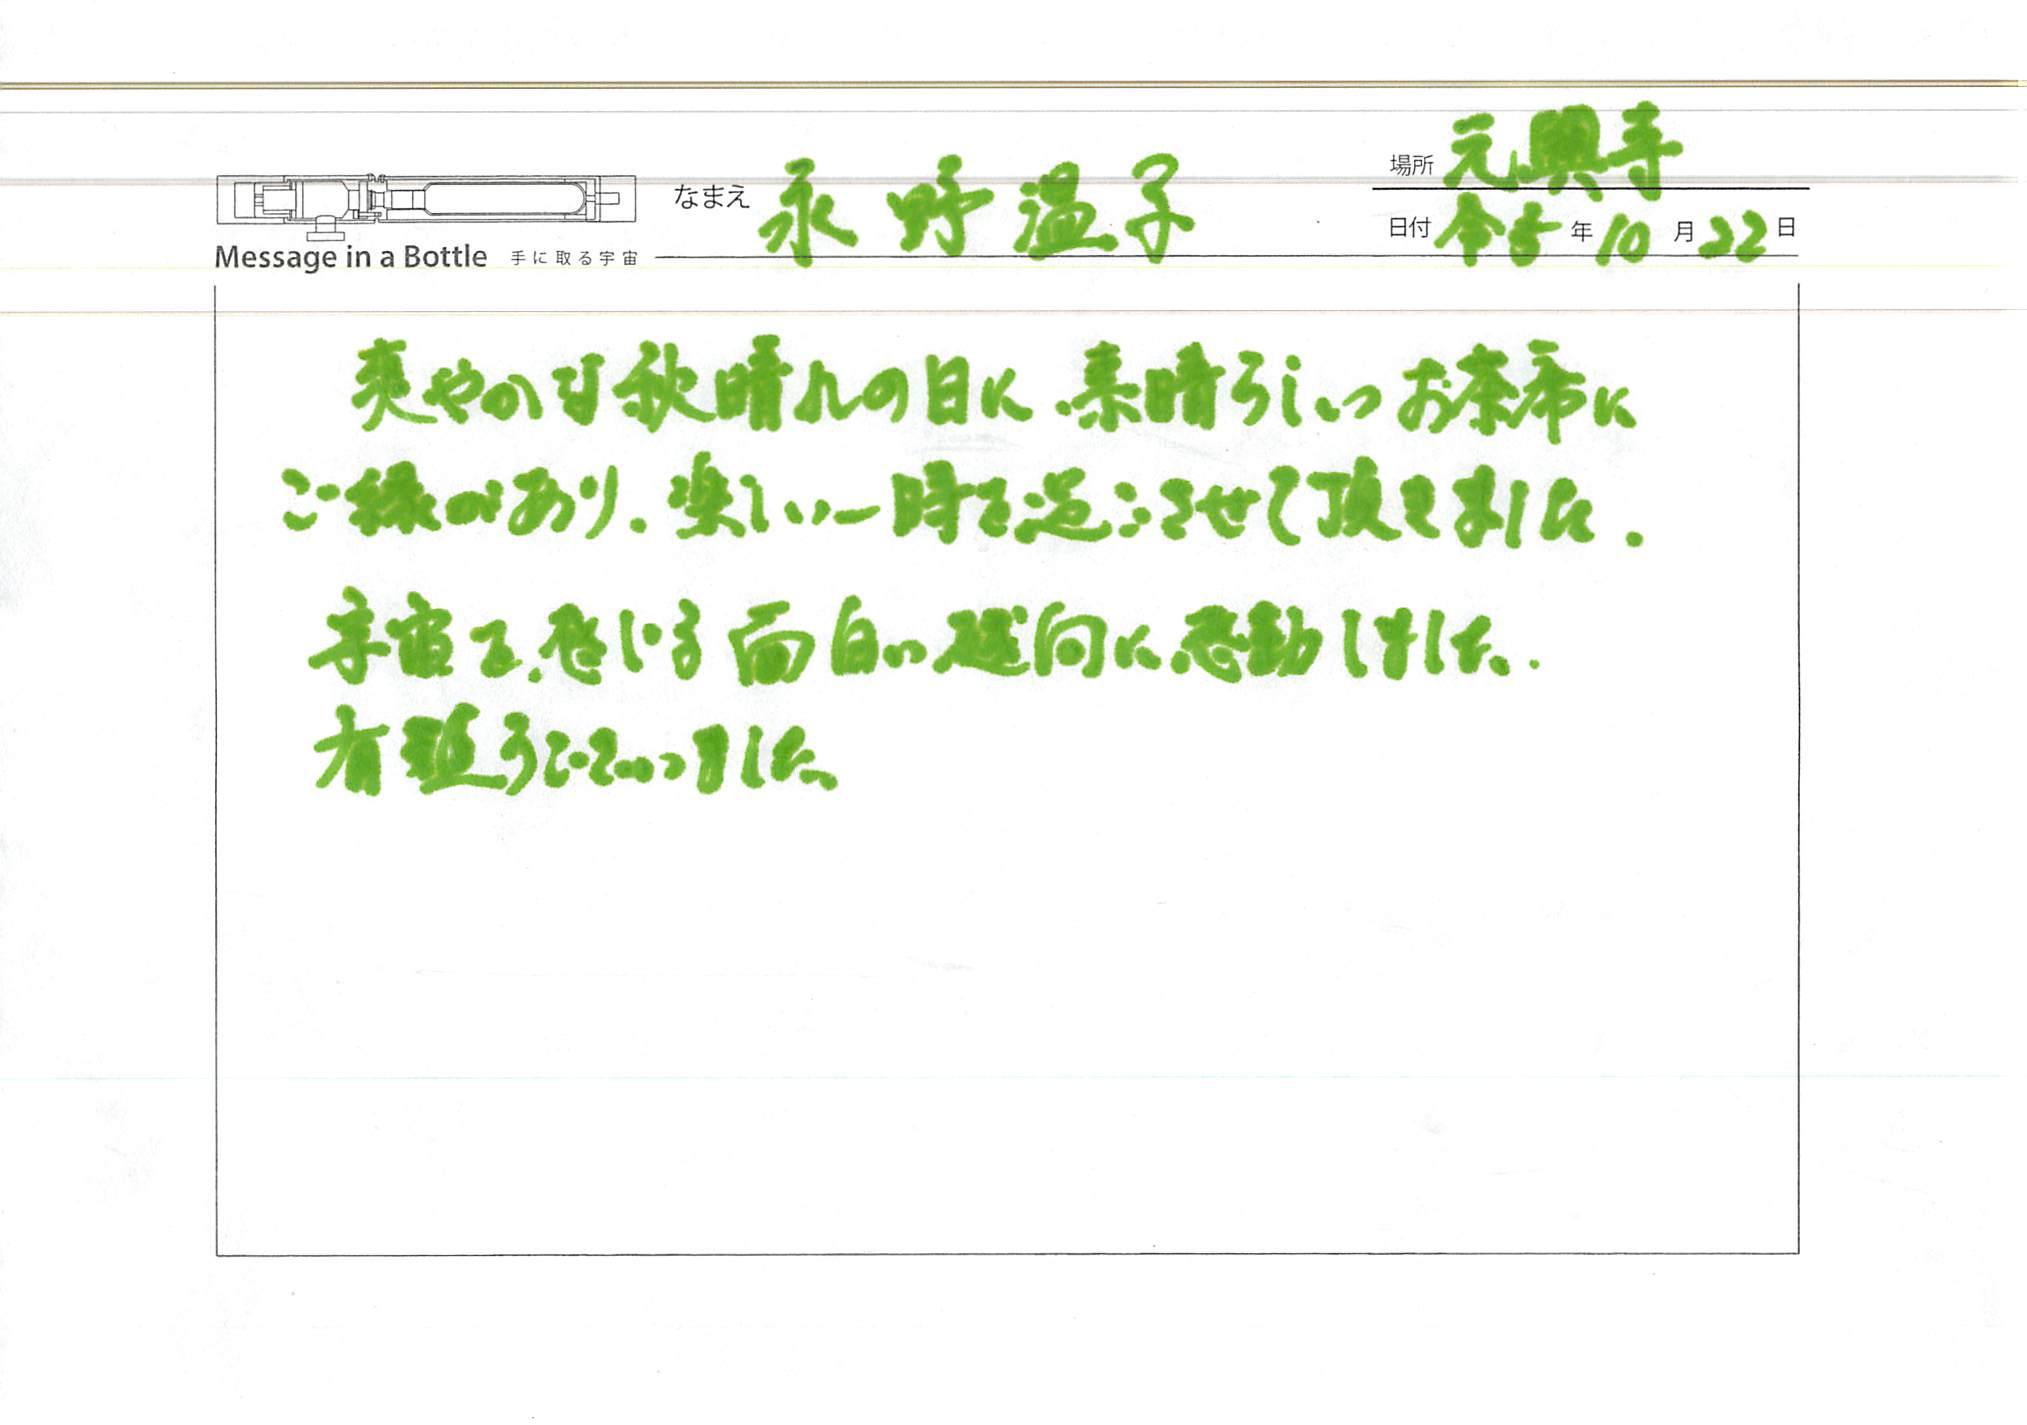 場所 元興寺
なまえ 永野温子
日付 令5年10月22日
Message in a Bottle 手に取る宇宙
爽やかな秋晴れの日に、素晴らしいお茶席に
ご縁があり、楽しい一時を過ごさせて頂きました。
宇宙を感じる面白い趣向に感動しました。
有難うございました。